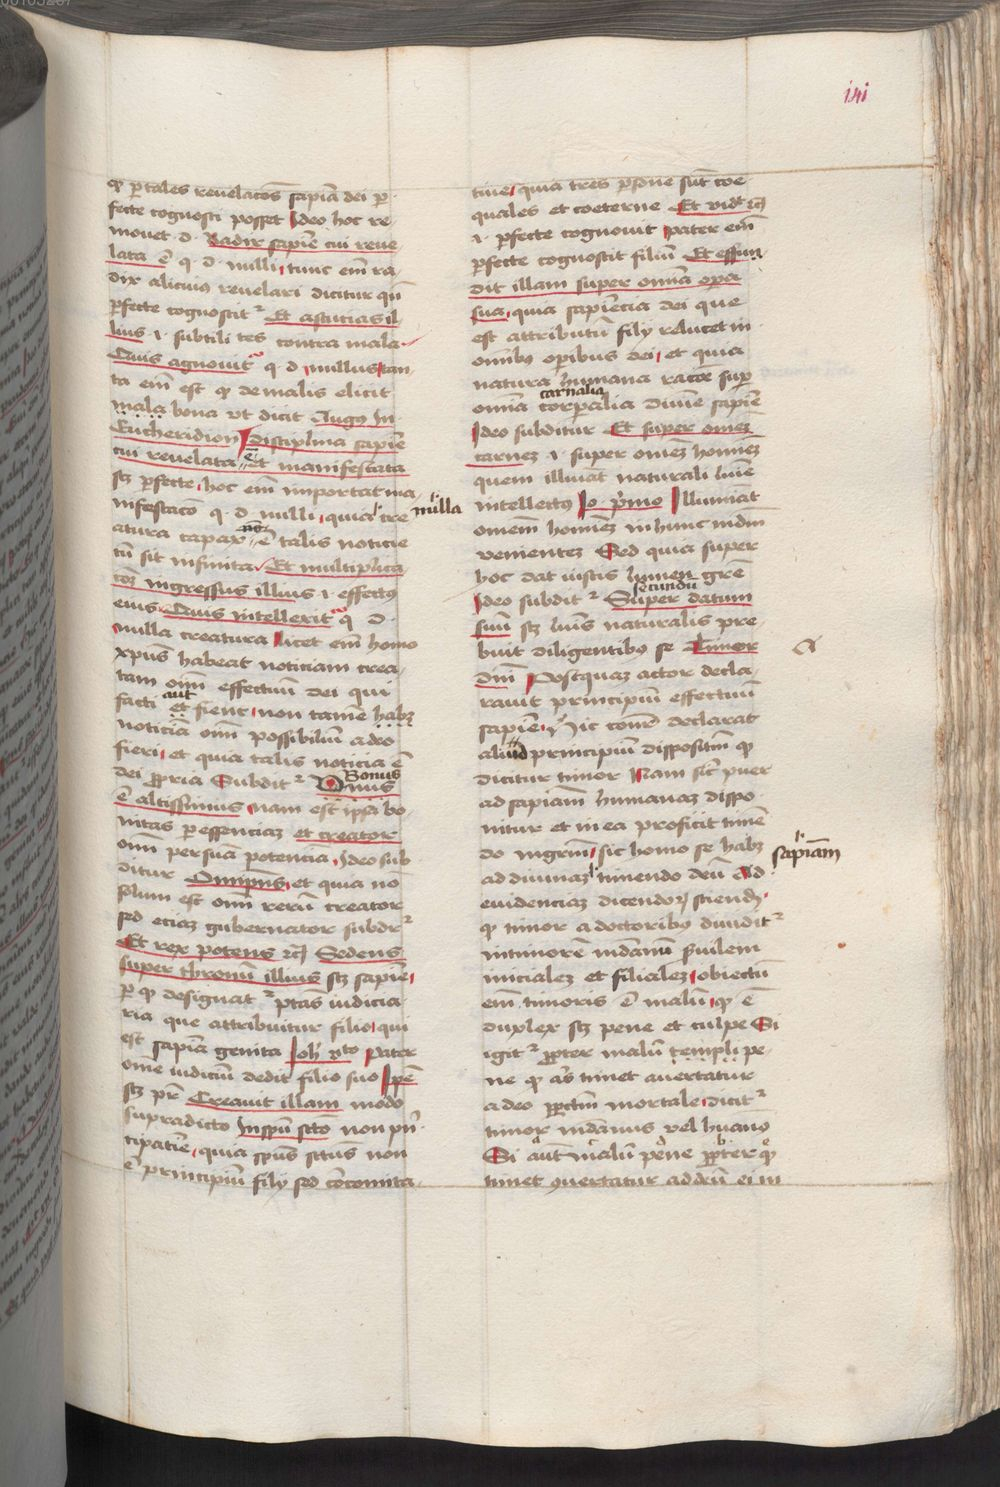 141
ꝙ ꝑ tales reuelacōs sapiā dei ꝑ-
fecte cognosci posset Ideo hoc re
mouet ·d· Radix sapiē cui reue
lata ē q· d· nulli, tunc em̄ ra
dix alicuius reuelari dicitur qn̄
ꝑfecte cognoscit² Et astucias il
lius ·i· subtilites contra mala
Quis agnouit q d nullus, tan
ta em̄ est ꝙ de malis elicit
mala bona vt dicit Augus In
Eucheridion Disciplina sapiē
cui reuelata ē et manifestata
sꝫ ꝑfecte, hoc em̄ importat ma
nifestacō q· d· nulli, quia cre
nulla
atura capax nō ē talis noticie
cū sit infinita Et multiplica
coꝫ ingressus illius ·i· effectꝰ
eius Quis intellexit q d·
nulla creatura licet em̄ homo
xpus habeat noticiam crea
tam oīm effectuū dei qui
aut
facti et fient, non tamē habꝫ
noticiā oīm possibiliū a deo
fieri, et quia talis noticia ē
dei ꝓpria Subdit² Vnus
Bonus
ē altissimus, nam est ipsa bo
nitas ꝑ essenciaꝫ et creator
oīm per suā potencia, Ideo sub
ditur Omnipn̄s, et quia nō
solum est oīm rerū creator
sed eciaꝫ gubernator subdr²
Et rex potens ꝛcꝫ Sedens
super thronū illius sꝫ sapiē,
ꝑ ꝙ designat² ptas iudicia
ria que attribuitur filio, qui
est sapiā genita Joh̄ vto Pater
om̄e iudiciū dedit filio suo Ipē
sꝫ pr̄ Creauit illam modo
supradicto In spū scō non pn̄
cipatiē, quia spūs sctūs non
ē principiū filij sed cōcomita
tiue, quia tres ꝑsōne sūt coe
quales et coeterne Et vidꝫ ꝛcꝫ
·i· ꝑfecte cognouit pater em̄
ꝑfecte cognoscit filiū Et effun
dit illam super omnia opera
sua, quia sapiencia dei que
est attributū filij relucet in
omnibꝰ oꝑibus dei, et quia
natura humana racōe sup
carnalia
omīa corpalia diuīe sapiē
Ideo subditur Et super omēꝫ
carneꝫ ·i· super omēꝫ homīeꝫ
quem illuīat naturali luīe
intellectꝰ Jo pͥmo Illumīat
omnem homīeꝫ in hunc mdm
venienteꝫ Sed quia super
hoc dat iustis lumen grē
secundū
Ideo subdit² Super datum
suū sꝫ luīs naturalis pre
buit diligentibꝰ se Timor
Dm̄ Postquaꝫ actor decla
rauit principiū effectiuū
sapiē, hic cōnr̄ declarat
aliud principiū dispositiū ꝙ
dicitur timor Nam sic̄ puer
ad sapiam humanaꝫ dispo
nitur et in ea proficit timē
do mgrm̄, sic homo se habꝫ
ad diuinaꝫ timendo deū Ad
sapiam
euidenciaꝫ dicendoꝝ sciendꝫ
ꝙ timor a doctoribꝰ diuidit²
in timorē mdanū ẜuilem
inicialeꝫ et filialeꝫ, obiectū
em̄ timoris ē malū, ꝙ ē
duplex sꝫ pene et culpe Si
igit² ꝓpter malū templi pe
ne ꝙ aīs timet auertatur
a deo ꝑ pctm̄ mortale, dicit²
timor mdanus vel huanꝰ
Si aūt malū pene ꝓpter ꝙ
timet ꝯuertatur ad deū ei in